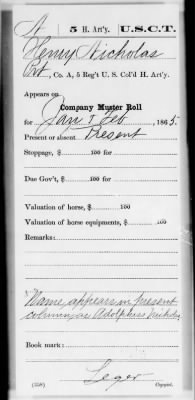 N 5 H. Art'y. U.S.C.T.
Henry Nicholas
Pvt, Co. A, 5 Reg't U. S. Col'd H. Art'y.
Appears on
Company Muster Roll
for Jan & Feb, 1865
Present or absent Present
Stoppage, $ 100 for
Due Gov't, $ 100 for
Valuation of horse, $ 100
Valuation of horse equipments, $ 100
Remarks:
Name appears in present
column as Adolphus Nicholas
Book mark:
Leger
(358) Copyist.